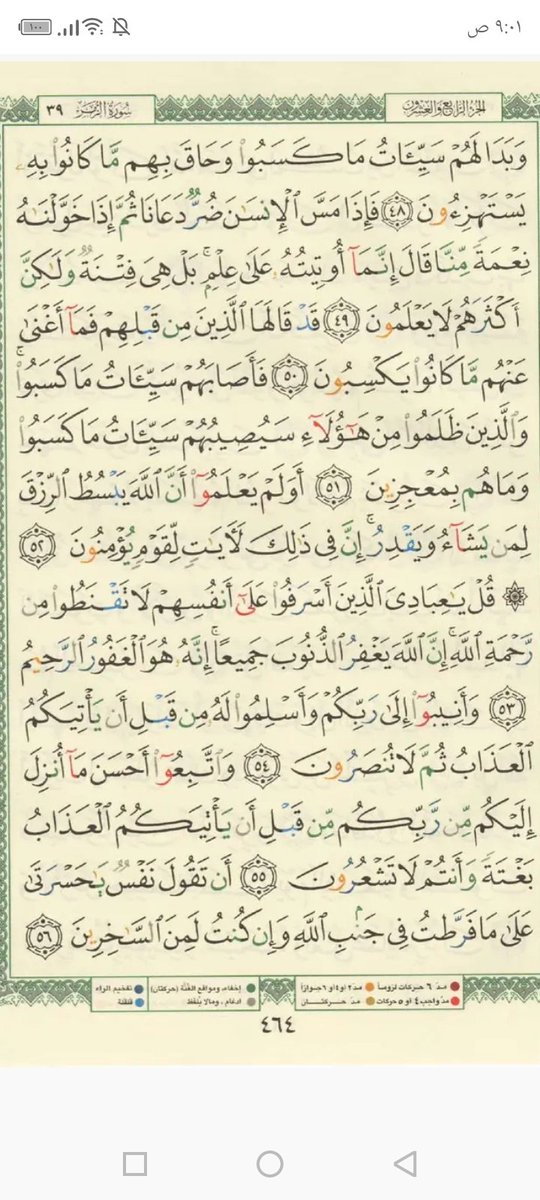 ٩:٠١ ص
١٠٠
الجزء الرابع والعشرون
سورة الزمر ٣٩
وَبَدَا لَهُمْ سَيِّـَٔاتُ مَا كَسَبُوا۟ وَحَاقَ بِهِم مَّا كَانُوا۟ بِهِۦ
يَسْتَهْزِءُونَ ٤٨ فَإِذَا مَسَّ ٱلْإِنسَـٰنَ ضُرٌّ دَعَانَا ثُمَّ إِذَا خَوَّلْنَـٰهُ
نِعْمَةً مِّنَّا قَالَ إِنَّمَآ أُوتِيتُهُۥ عَلَىٰ عِلْمٍۭ ۚ بَلْ هِىَ فِتْنَةٌ وَلَـٰكِنَّ
أَكْثَرَهُمْ لَا يَعْلَمُونَ ٤٩ قَدْ قَالَهَا ٱلَّذِينَ مِن قَبْلِهِمْ فَمَآ أَغْنَىٰ
عَنْهُم مَّا كَانُوا۟ يَكْسِبُونَ ٥٠ فَأَصَابَهُمْ سَيِّـَٔاتُ مَا كَسَبُوا۟ ۚ
وَٱلَّذِينَ ظَلَمُوا۟ مِنْ هَـٰٓؤُلَآءِ سَيُصِيبُهُمْ سَيِّـَٔاتُ مَا كَسَبُوا۟
وَمَا هُم بِمُعْجِزِينَ ٥١ أَوَلَمْ يَعْلَمُوٓا۟ أَنَّ ٱللَّهَ يَبْسُطُ ٱلرِّزْقَ
لِمَن يَشَآءُ وَيَقْدِرُ ۚ إِنَّ فِى ذَٰلِكَ لَـَٔايَـٰتٍ لِّقَوْمٍ يُؤْمِنُونَ ٥٢
۞ قُلْ يَـٰعِبَادِىَ ٱلَّذِينَ أَسْرَفُوا۟ عَلَىٰٓ أَنفُسِهِمْ لَا تَقْنَطُوا۟ مِن
رَّحْمَةِ ٱللَّهِ ۚ إِنَّ ٱللَّهَ يَغْفِرُ ٱلذُّنُوبَ جَمِيعًا ۚ إِنَّهُۥ هُوَ ٱلْغَفُورُ ٱلرَّحِيمُ
٥٣ وَأَنِيبُوٓا۟ إِلَىٰ رَبِّكُمْ وَأَسْلِمُوا۟ لَهُۥ مِن قَبْلِ أَن يَأْتِيَكُمُ
ٱلْعَذَابُ ثُمَّ لَا تُنصَرُونَ ٥٤ وَٱتَّبِعُوٓا۟ أَحْسَنَ مَآ أُنزِلَ
إِلَيْكُم مِّن رَّبِّكُم مِّن قَبْلِ أَن يَأْتِيَكُمُ ٱلْعَذَابُ
بَغْتَةً وَأَنتُمْ لَا تَشْعُرُونَ ٥٥ أَن تَقُولَ نَفْسٌ يَـٰحَسْرَتَىٰ
عَلَىٰ مَا فَرَّطتُ فِى جَنۢبِ ٱللَّهِ وَإِن كُنتُ لَمِنَ ٱلسَّـٰخِرِينَ ٥٦
مد ٦ حركات لزوماً مد ٢ أو ٤ أو ٦ جوازاً إخفاء، ومواقع الغنة (حركتان) تفخيم الراء
مد واجب ٤ أو ٥ حركات مد حركتان إدغام، وما لا يلفظ قلقلة
٤٦٤